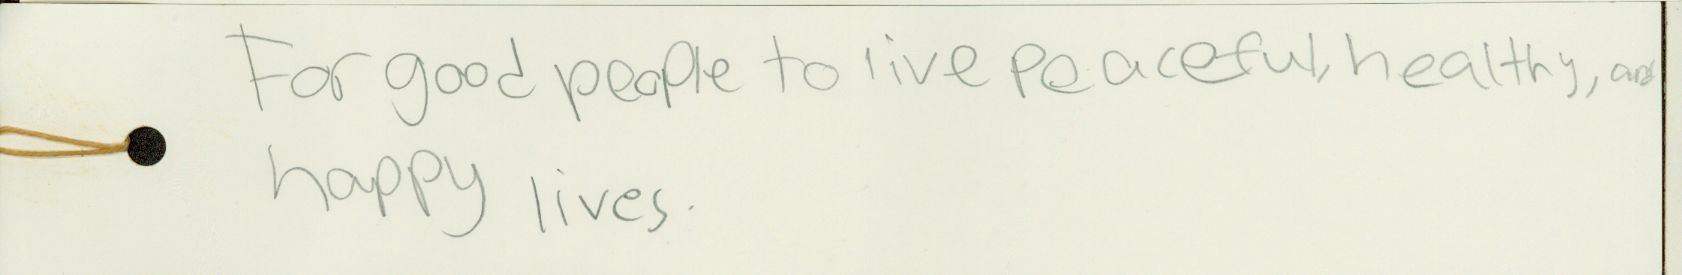 For good people to live peaceful, healthy, and
happy lives.